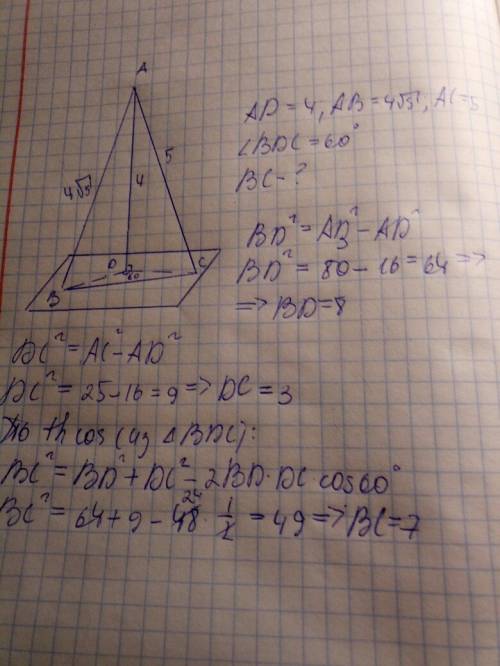 A
4√5
4
5
D
60
C
B
AD = 4, AB = 4√5, AC = 5
∠BDC = 60°
BC - ?
BD² = AB² - AD²
BD² = 80 - 16 = 64 =>
=> BD = 8
DC² = AC² - AD²
DC² = 25 - 16 = 9 => DC = 3
По th cos (из △BDC):
BC² = BD² + DC² - 2BD·DC cos60°
24
BC² = 64 + 9 - 48 · 1/2 = 49 => BC = 7